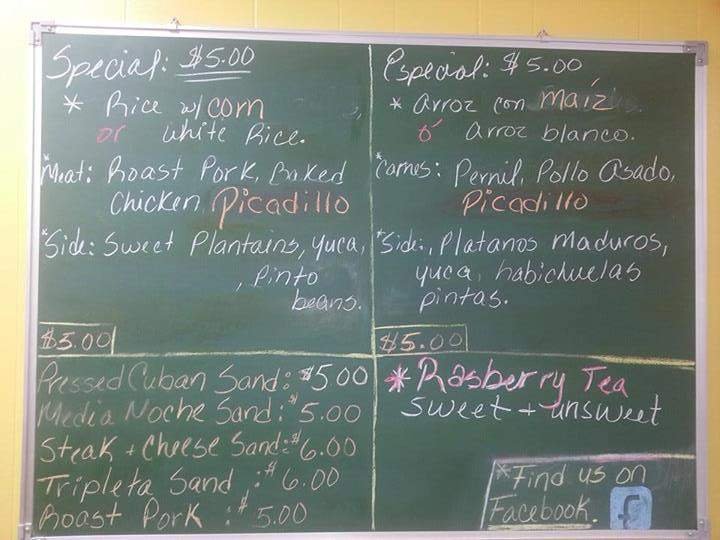 Special: $5.00
* Rice w/ corn
or white Rice.
*Meat: Roast Pork, Baked
Chicken, Picadillo
*Side: Sweet Plantains, yuca,
, pinto
beans.
$5.00
Especial: $5.00
* arroz con maíz
ó arroz blanco.
*Carnes: Pernil, Pollo asado,
Picadillo
*Side:, Platanos maduros,
yuca, habichuelas
pintas.
$5.00
Pressed Cuban Sand: $5.00
Media Noche Sand: $5.00
Steak + Cheese Sand: $6.00
Tripleta Sand : $6.00
Roast Pork : $5.00
*Rasberry Tea
sweet + unsweet
*Find us on
Facebook. f